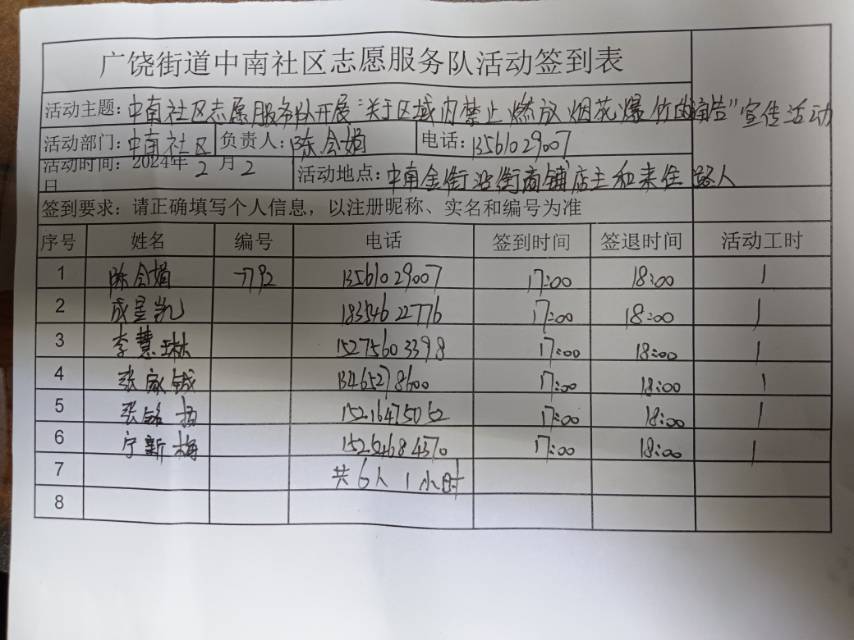 广饶街道中南社区志愿服务队活动签到表
活动主题：中南社区志愿服务队开展“关于区域内禁止燃放烟花爆竹的通告”宣传活动
活动部门：中南社区 负责人：陈会娟 电话：13561029007
活动时间：2024年 2 月 2 日 活动地点：中南金街沿街商铺店主和来往路人
签到要求：请正确填写个人信息，以注册昵称、实名和编号为准
序号 姓名 编号 电话 签到时间 签退时间 活动工时
1 陈会娟 7792 13561029007 17:00 18:00 1
2 成星凯 18354622776 17:00 18:00 1
3 李慧琳 15275603398 17:00 18:00 1
4 张家钺 13465278600 17:00 18:00 1
5 张铭 15216475052 17:00 18:00 1
6 宁新梅 15252684370 17:00 18:00 1
7 共6人 1小时
8